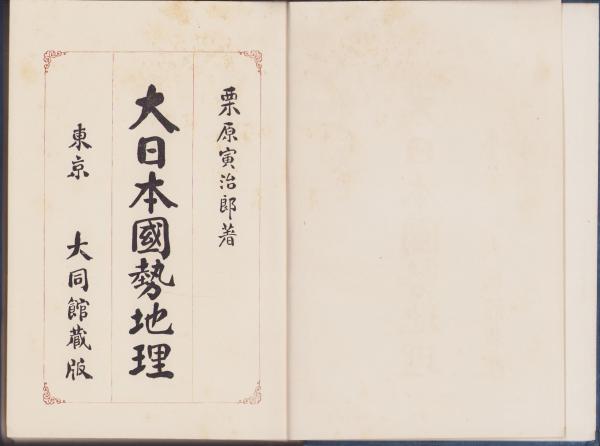 栗原寅治郎著
大日本國勢地理
東京 大同館蔵版